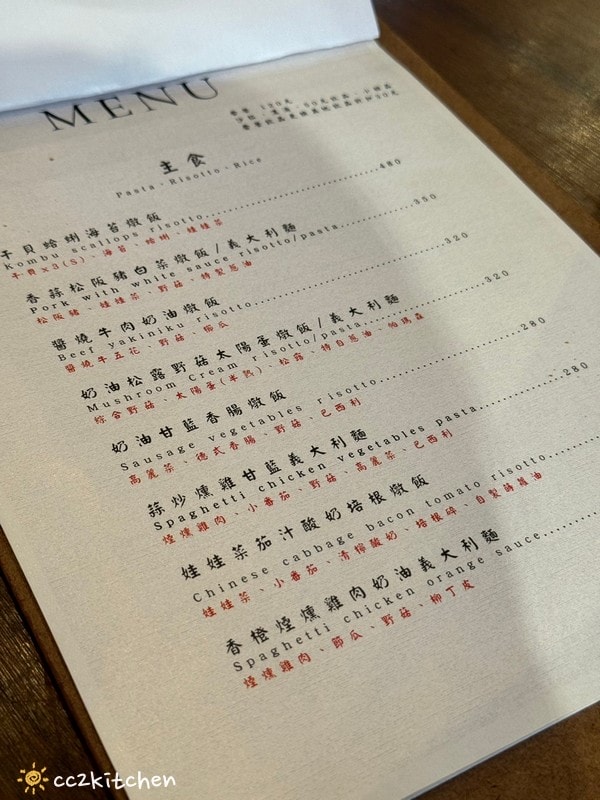 MENU
主食
Pasta · Risotto · Rice
干貝蛤蜊海苔燉飯
Kombu scallops risotto..............................480
干貝x3(S)、海苔、蛤蜊、娃娃菜
香蒜松阪豬白菜燉飯/義大利麵
Pork with white sauce risotto/pasta..............350
松阪豬、娃娃菜、野菇、特製蔥油
醬燒牛肉奶油燉飯
Beef yakiniku risotto..............................320
醬燒牛五花、野菇、櫛瓜
奶油松露野菇太陽蛋燉飯/義大利麵
Mushroom Cream risotto/pasta....................320
綜合野菇、太陽蛋(半熟)、松露、特白蔥油、帕瑪森
奶油甘藍香腸燉飯
Sausage vegetables risotto........................280
高麗菜、德式香腸、野菇、巴西利
蒜炒燻雞甘藍義大利麵
Spaghetti chicken vegetables pasta..............280
煙燻雞肉、小番茄、野菇、高麗菜、巴西利
娃娃菜茄汁酸奶培根燉飯
Chinese cabbage bacon tomato risotto..........
娃娃菜、小番茄、清檸酸奶、培根碎、自製蒜辣油
香橙煙燻雞肉奶油義大利麵
Spaghetti chicken orange sauce..........
煙燻雞肉、節瓜、野菇、柳丁皮
cc2kitchen